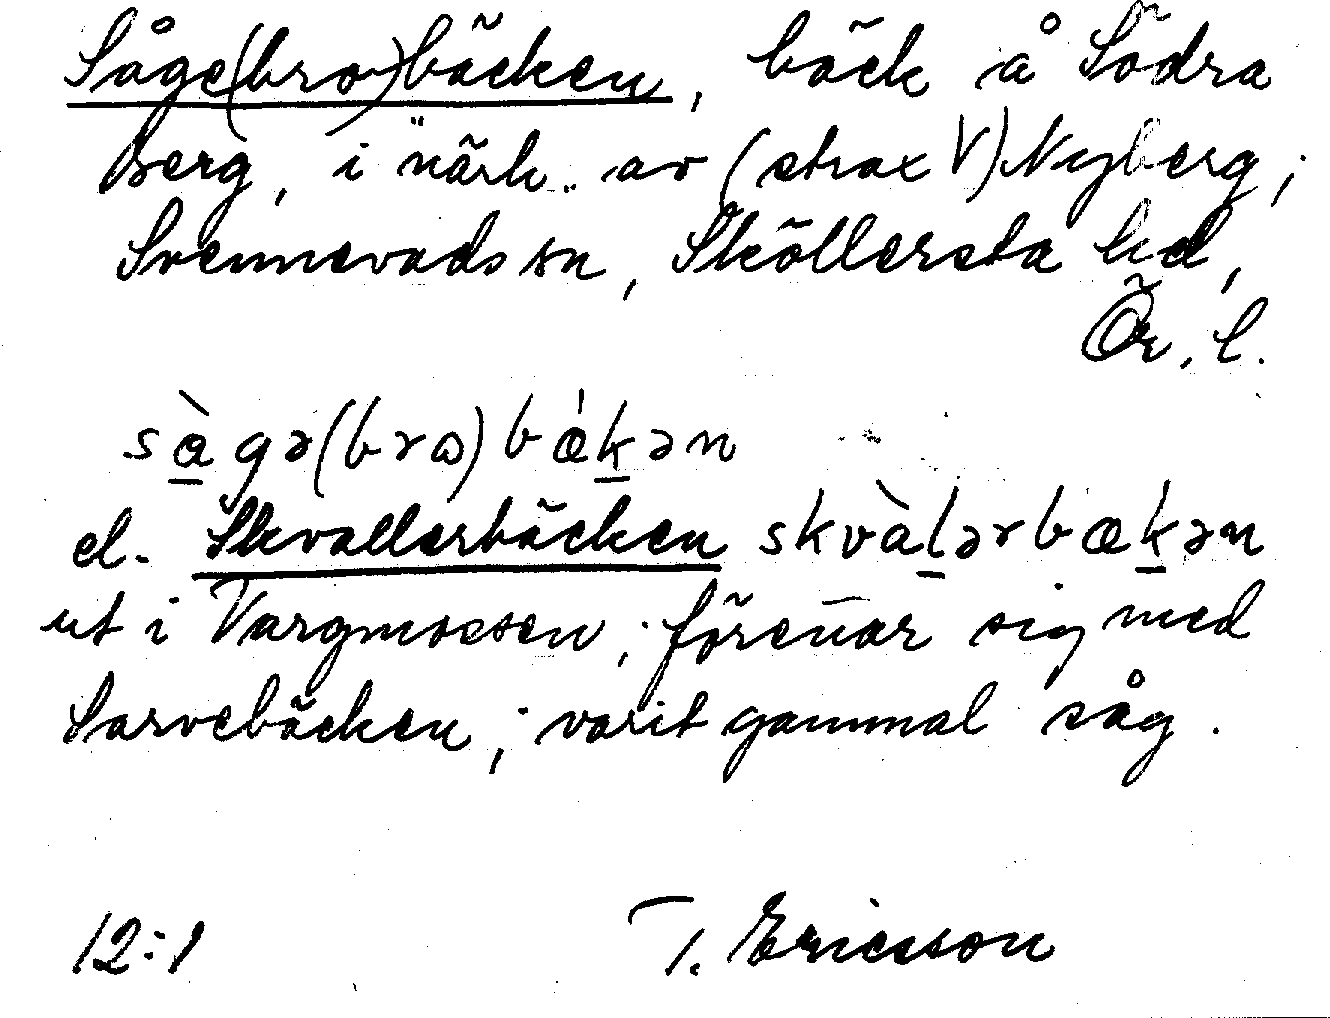 Såge(bro)bäcken, bäck å Södra
berg, i närh. av (strax V) Nyberg;
Svennevads sn, Sköllersta hd,
Ör. l.
sàgə(brω)bǽkən
el. Skvallerbäcken skvàlərbækən
ut i Vargmossen; förenar sig med
Sarvebäcken; varit gammal såg.
12:1 T. Ericsson